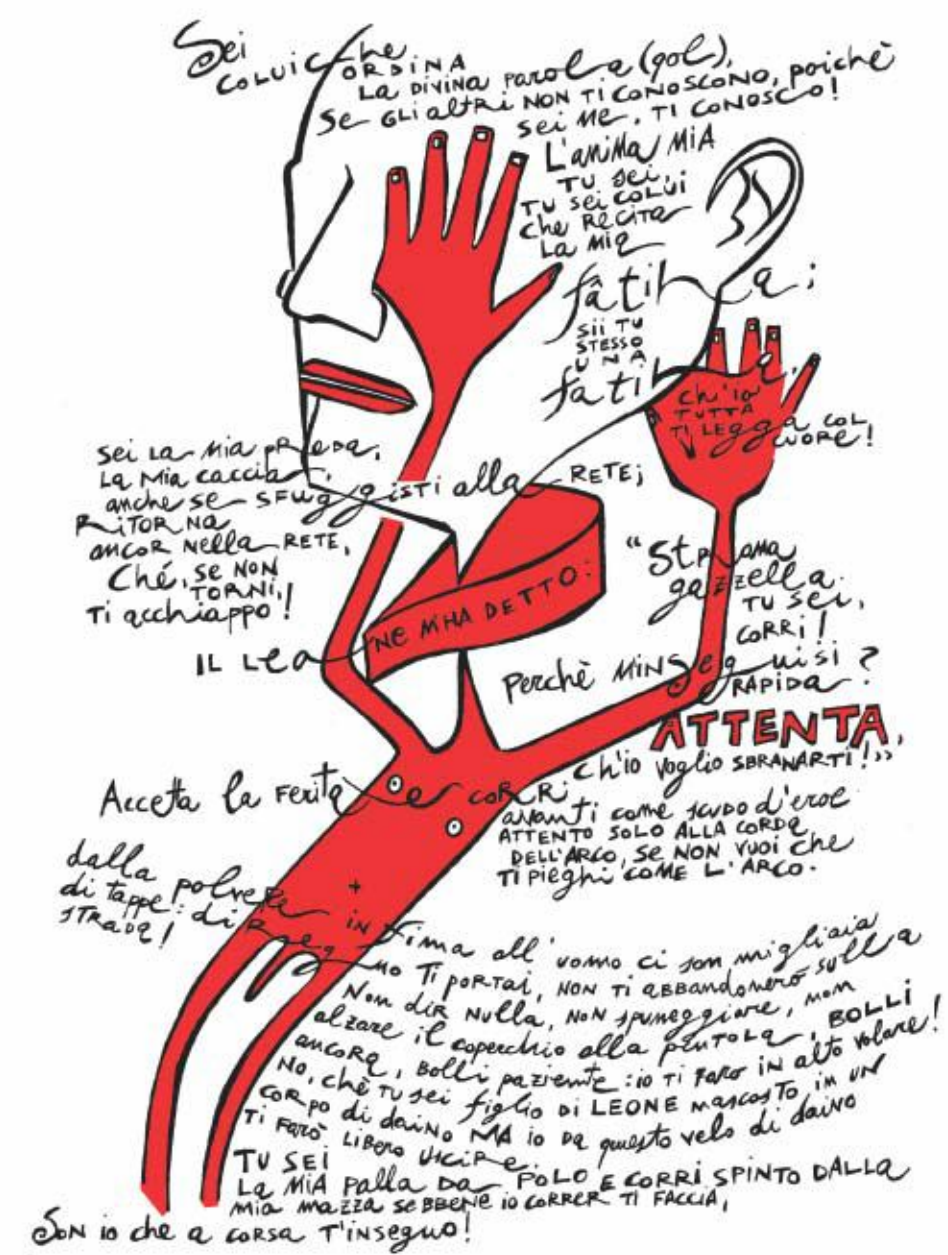 Sei
COLUI che
ORDINA
LA DIVINA PAROLA (qol),
Se GLI altri NON TI CONOSCONO, poichè
sei ME, TI CONOSCO!
L'anima MIA
TU sei,
TU sei COLUI
che RECITA
LA MIA
fâtiha;
SII TU
STESSO
UNA
fatiha,
ch'io
TUTTA
TI LEGGA COL
CUORE!
SEI LA MIA PREDA,
LA MIA caccia,
anche se SFUGGISTI alla RETE;
RITORNA
ANCOR NELLA RETE,
Ché, SE NON
TORNI,
TI acchiappo!
IL LEONE M'HA DETTO:
"STRANA
gazzella
TU sei,
CORRI!
Perchè M'INSEGUISI
RAPIDA?
ATTENTA,
Ch'io voglio SBRANARTI!»
Accetta la FERITA e CORRI
avanti come scudo d'eroe
ATTENTO SOLO ALLA CORDA
DELL'ARCO, SE NON VUOI che
TI PIEGHI COME L'ARCO.
dalla polvere in fima all'uomo ci son migliaia
di tappe: di REGNO TI PORTAI, NON TI ABBANDONERÒ SULLA
STRADA!
Non DIR NULLA, NON spumeggiare, non
alzare il coperchio alla PENTOLA, BOLLI
ancora, BOLLI paziente: io TI FARÒ IN alto volare!
NO, chè TU sei figlio DI LEONE nascosto in UN
CORPO di daino MA io DA questo velo di daino
TI FARÒ LIBERO USCIRE.
TU SEI
LA MIA PALLA DA POLO E CORRI SPINTO DALLA
MIA MAZZA SEBBENE IO CORRER TI FACCIA,
SON io che a CORSA T'INSEGUO!